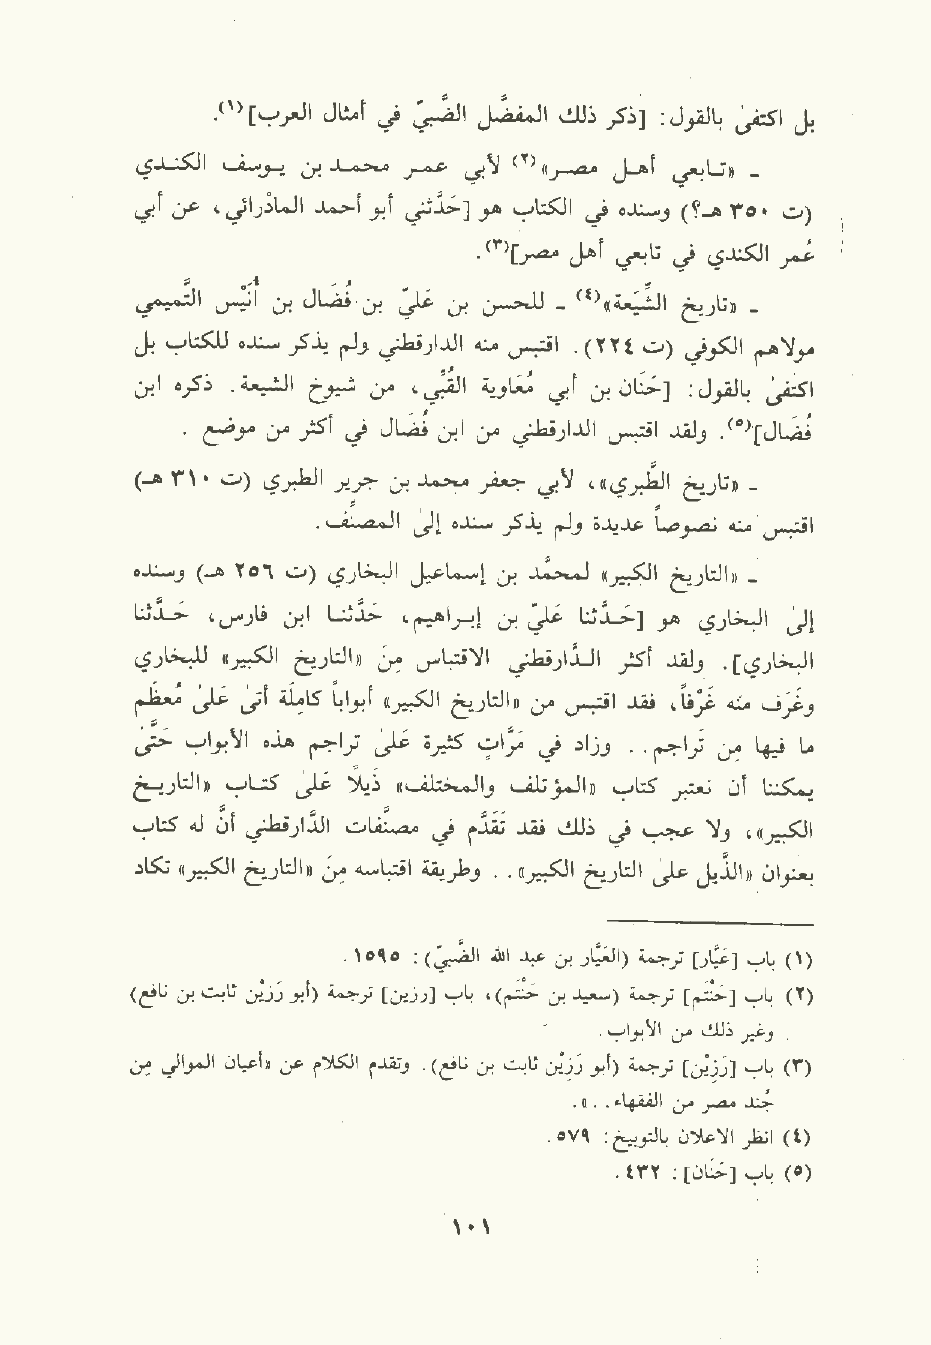 بل اكتفىٰ بالقول: [ذكر ذلك المفضّل الضّبيّ في أمثال العرب]⁽١⁾.
- «تابعي أهل مصر»⁽٢⁾ لأبي عمر محمد بن يوسف الكندي
(ت ٣٥٠ هـ؟) وسنده في الكتاب هو [حَدّثني أبو أحمد الماذرائي، عن أبي
عُمر الكندي في تابعي أهل مصر]⁽٣⁾.
- «تاريخ الشِّيعة»⁽٤⁾ - للحسن بن عليّ بن فُضال بن أُنَيْس التَّميمي
مولاهم الكوفي (ت ٢٢٤). اقتبس منه الدارقطني ولم يذكر سنده للكتاب بل
اكتفىٰ بالقول: [حَنان بن أبي مُعاوية القُبِّي، من شيوخ الشيعة. ذكره ابن
فُضَال]⁽٥⁾. ولقد اقتبس الدارقطني من ابن فُضَال في أكثر من موضع.
- «تاريخ الطَّبري»، لأبي جعفر محمد بن جرير الطبري (ت ٣١٠ هـ)
اقتبس منه نصوصاً عديدة ولم يذكر سنده إلىٰ المصنِّف.
- «التاريخ الكبير» لمحمَّد بن إسماعيل البخاري (ت ٢٥٦ هـ) وسنده
إلىٰ البخاري هو [حَدَّثنا عليّ بن إبراهيم، حَدَّثنا ابن فارس، حَدَّثنا
البخاري]. ولقد أكثر الدَّارقطني الاقتباس مِنَ «التاريخ الكبير» للبخاري
وغَرَف منه غَرْفاً، فقد اقتبس من «التاريخ الكبير» أبواباً كامِلَة أتىٰ عَلىٰ مُعظَم
ما فيها مِن تَراجم.. وزاد في مَرّاتٍ كثيرة عَلىٰ تراجم هذه الأبواب حَتّىٰ
يمكننا أن نعتبر كتاب «المؤتلف والمختلف» ذَيلاً عَلىٰ كتاب «التاريخ
الكبير»، ولا عجب في ذلك فقد تقَدَّم في مصنَّفات الدَّارقطني أنَّ له كتاب
بعنوان «الذَّيل علىٰ التاريخ الكبير».. وطريقة اقتباسه مِنَ «التاريخ الكبير» تكاد
(١) باب [عَيَّار] ترجمة (العَيَّار بن عبد الله الضَّبيّ): ١٥٩٥.
(٢) باب [حَنْتَم] ترجمة (سعيد بن حَنْتم)، باب [رزين] ترجمة (أبو رَزِيْن ثابت بن نافع)
وغير ذلك من الأبواب.
(٣) باب [رَزِيْن] ترجمة (أبو رَزِيْن ثابت بن نافع). وتقدم الكلام عن «أعيان الموالي مِن
جُند مصر من الفقهاء..».
(٤) انظر الاعلان بالتوبيخ: ٥٧٩.
(٥) باب [حَنَان]: ٤٣٢.
١٠١